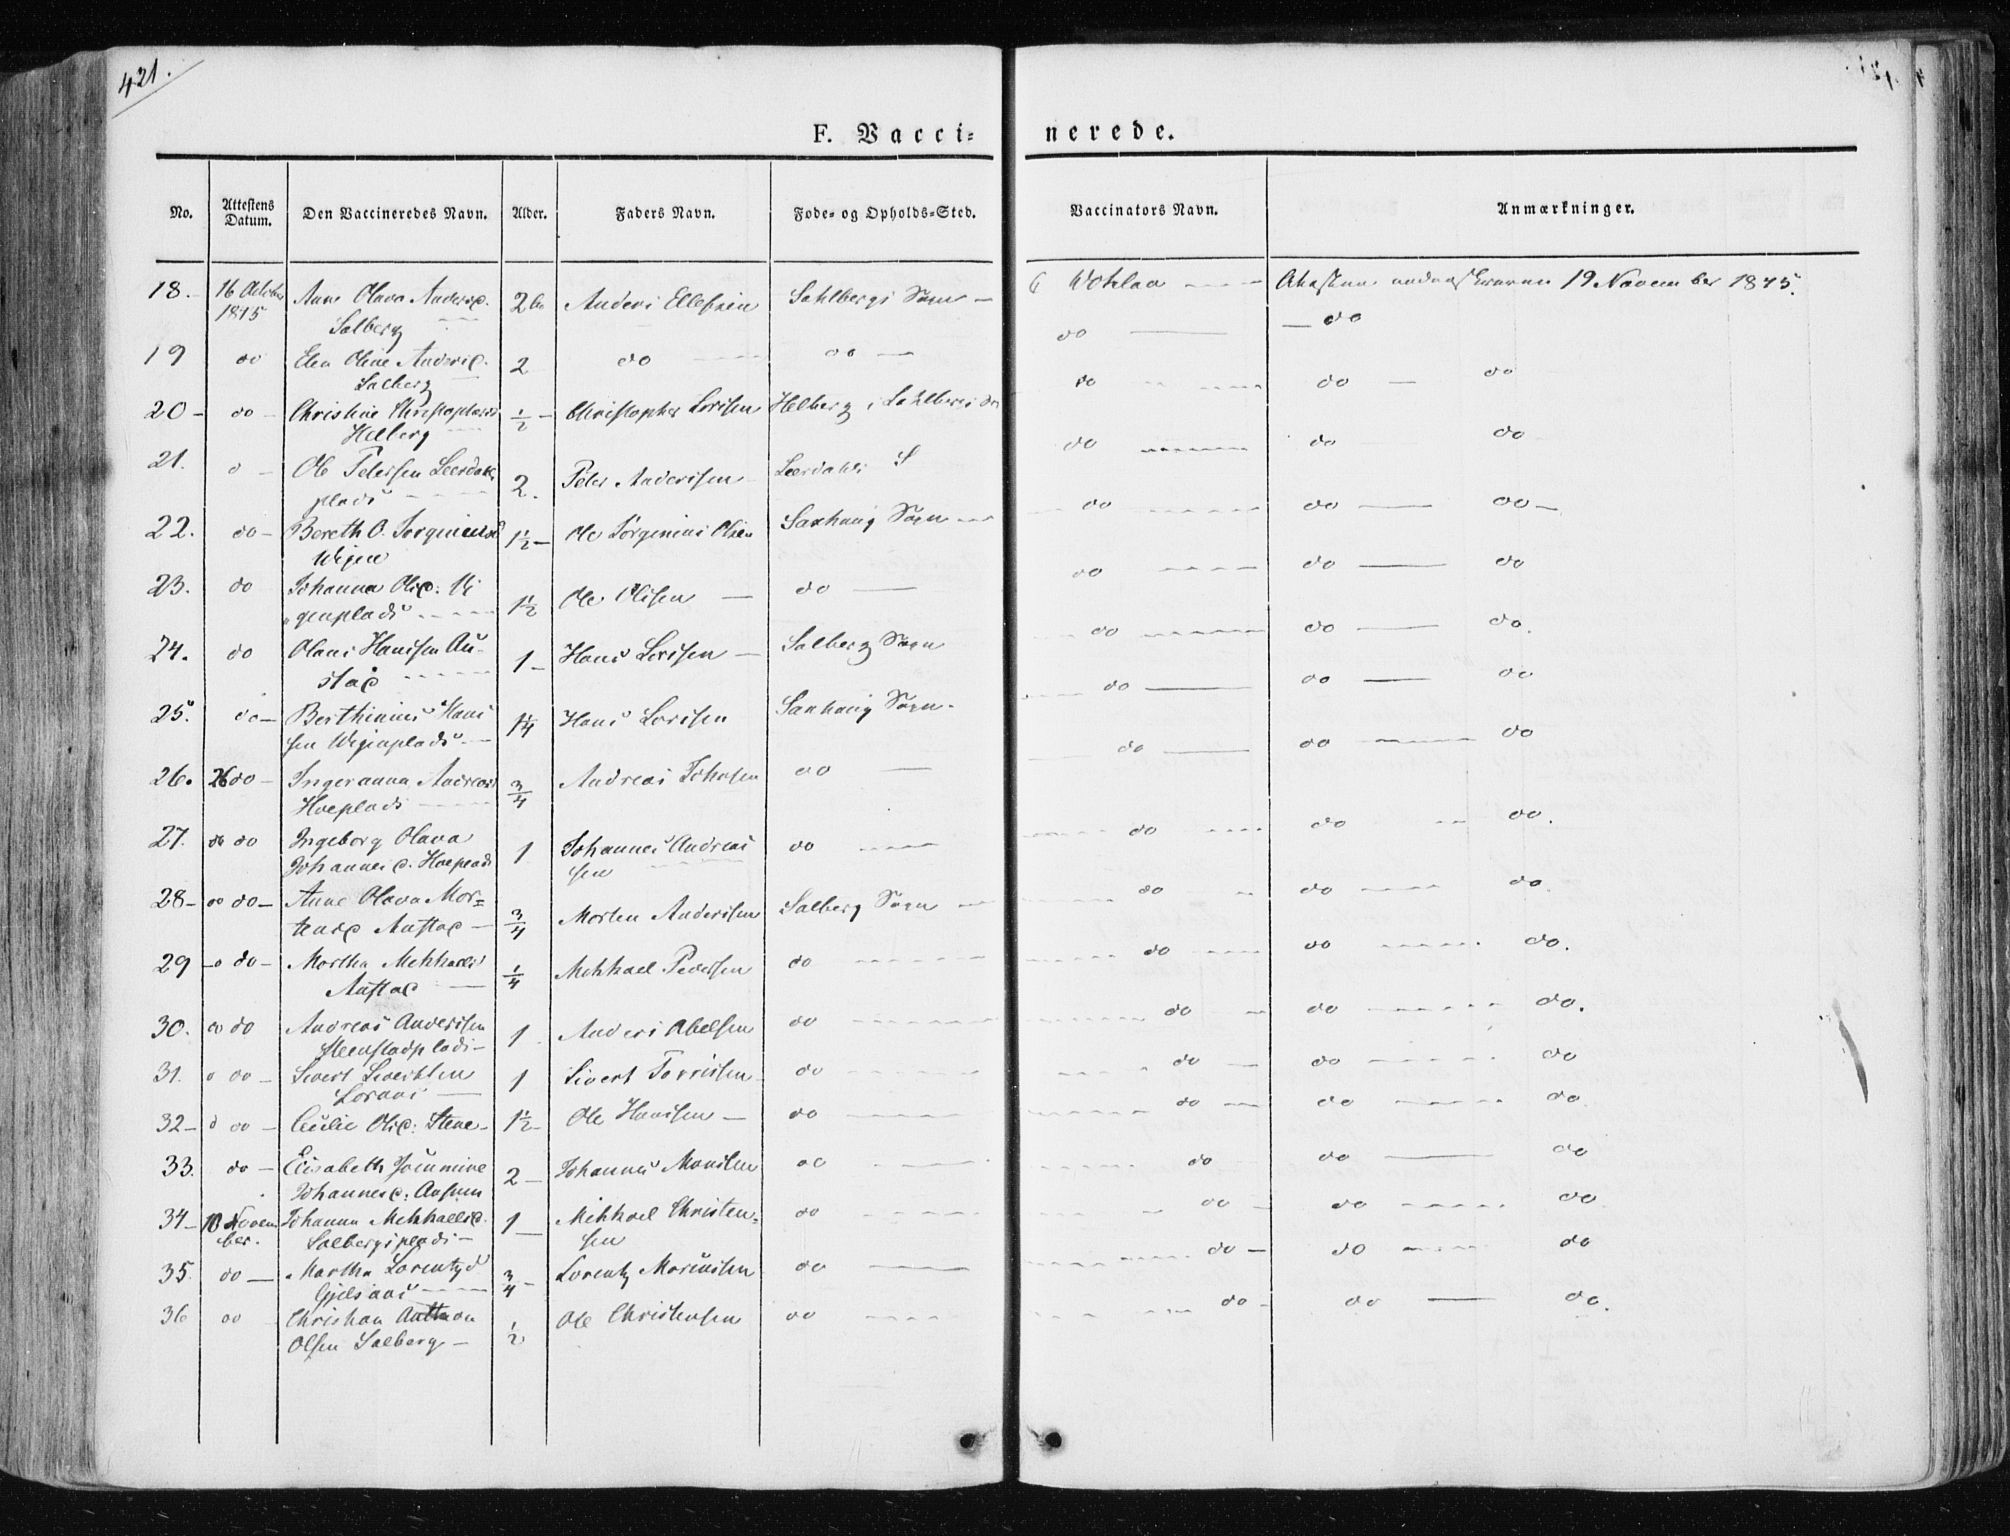 421.
F. Vacci= nerede.
No. Attestens Datum. Den Vaccineredes Navn. Alder. Faders Navn. Føde- og Opholds-Sted. Vaccinators Navn. Anmærkninger.
18. 16 October 1845 Anne Olava Andersd. Salberg 2 Anders Ellefsen Sahlbergs Sogn 19 November 1845.
do — do
19 do Elen Oline Andersd. Salberg 2 do do
do do do
20 - do - Christine Christophersd Helberg 1/2 - Christopher Larssen Helberg i Sahlbergs do
do do do
21. Ole Petersen Leerdals plads 2. Peter Anderssen Leerdahls S
do do do
22. do - Bereth O. Jørginiusd Wigen 1 1/2 - Ole Jørginius Olsen Saxhaug Sogn
do do do
23. do Johanna Olsd: Vi genplads 1 1/2 Ole Olssen do
do do do.
24. do Olaus Hanssen Au- stad 1 - Hans Larssen Salberg Sogn
do do do
25. do - Berthinius Hans sen Wigenplads 1 1/4 Hans Larssen Saxhaug Sogn.
do do do
26. 26 do - Ingeranna Andreasd Hoeplads 3/4 Andreas Johnsen do
do do do.
27. do do Ingeborg Olava Johannesd. Hoeplads 1 Johannes Andreas sen do
do do do.
28 - do do - Anne Olava Mor= tensd Austad 3/4 Morten Anderssen Salberg Sogn
do do do.
29 do - Martha Mekhaelsd Austad 1/4 Mekhael Pedersen do
do do do.
30. do do Andreas Anderssen Steenstadplads 1 Anders Abelsen do
do do do
31. do - Sivert Sivertsen 1 Sivert Torrissen do
do do do
32 - do - Cecilie Olsd: Stene 1 1/2 - Ole Hanssen do
do do do
33. do - Elisabeth Johannesd: 2 - Johannes Monsen do
do do do
34 - 10 Novem ber. Johanna Mekhaelsd. Salbergsplads 1 Mikhael Christen= sen do
do do do
35. do - Martha Lorentzd 3/4 - Lorentz do
do do do.
36 do Christian Anton Olsen Salberg 1/2 Ole Christensen do